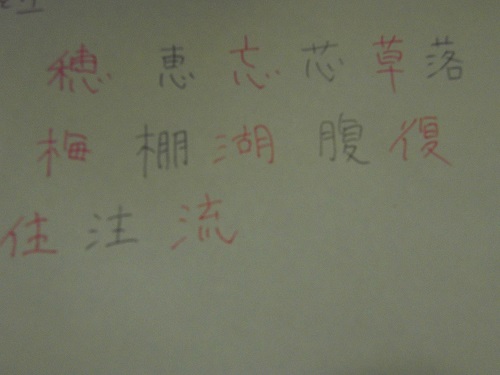 穂恵忘芯草落
梅棚湖腹復
住注流